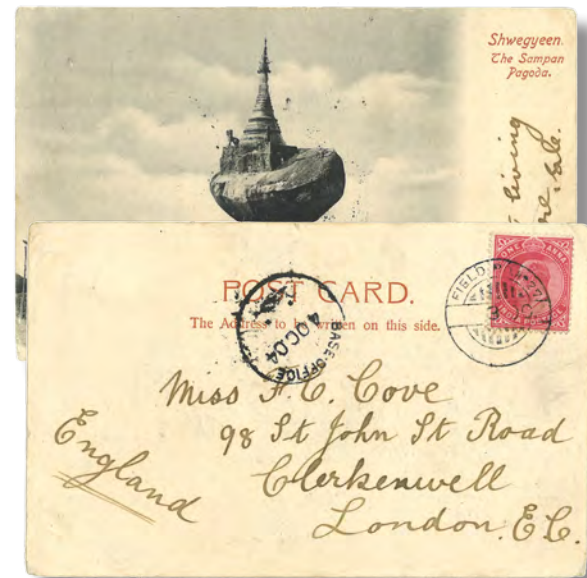 Shwegyeen.
The Sampan
Pagoda.
living
ONE ANNA
POST CARD.
The Address to be written on this side.
FIELD
BASE-OFFICE
4 OC 04
Miss F. C. Cove
98 St John St Road
Clerkenwell
London. E.C.
England